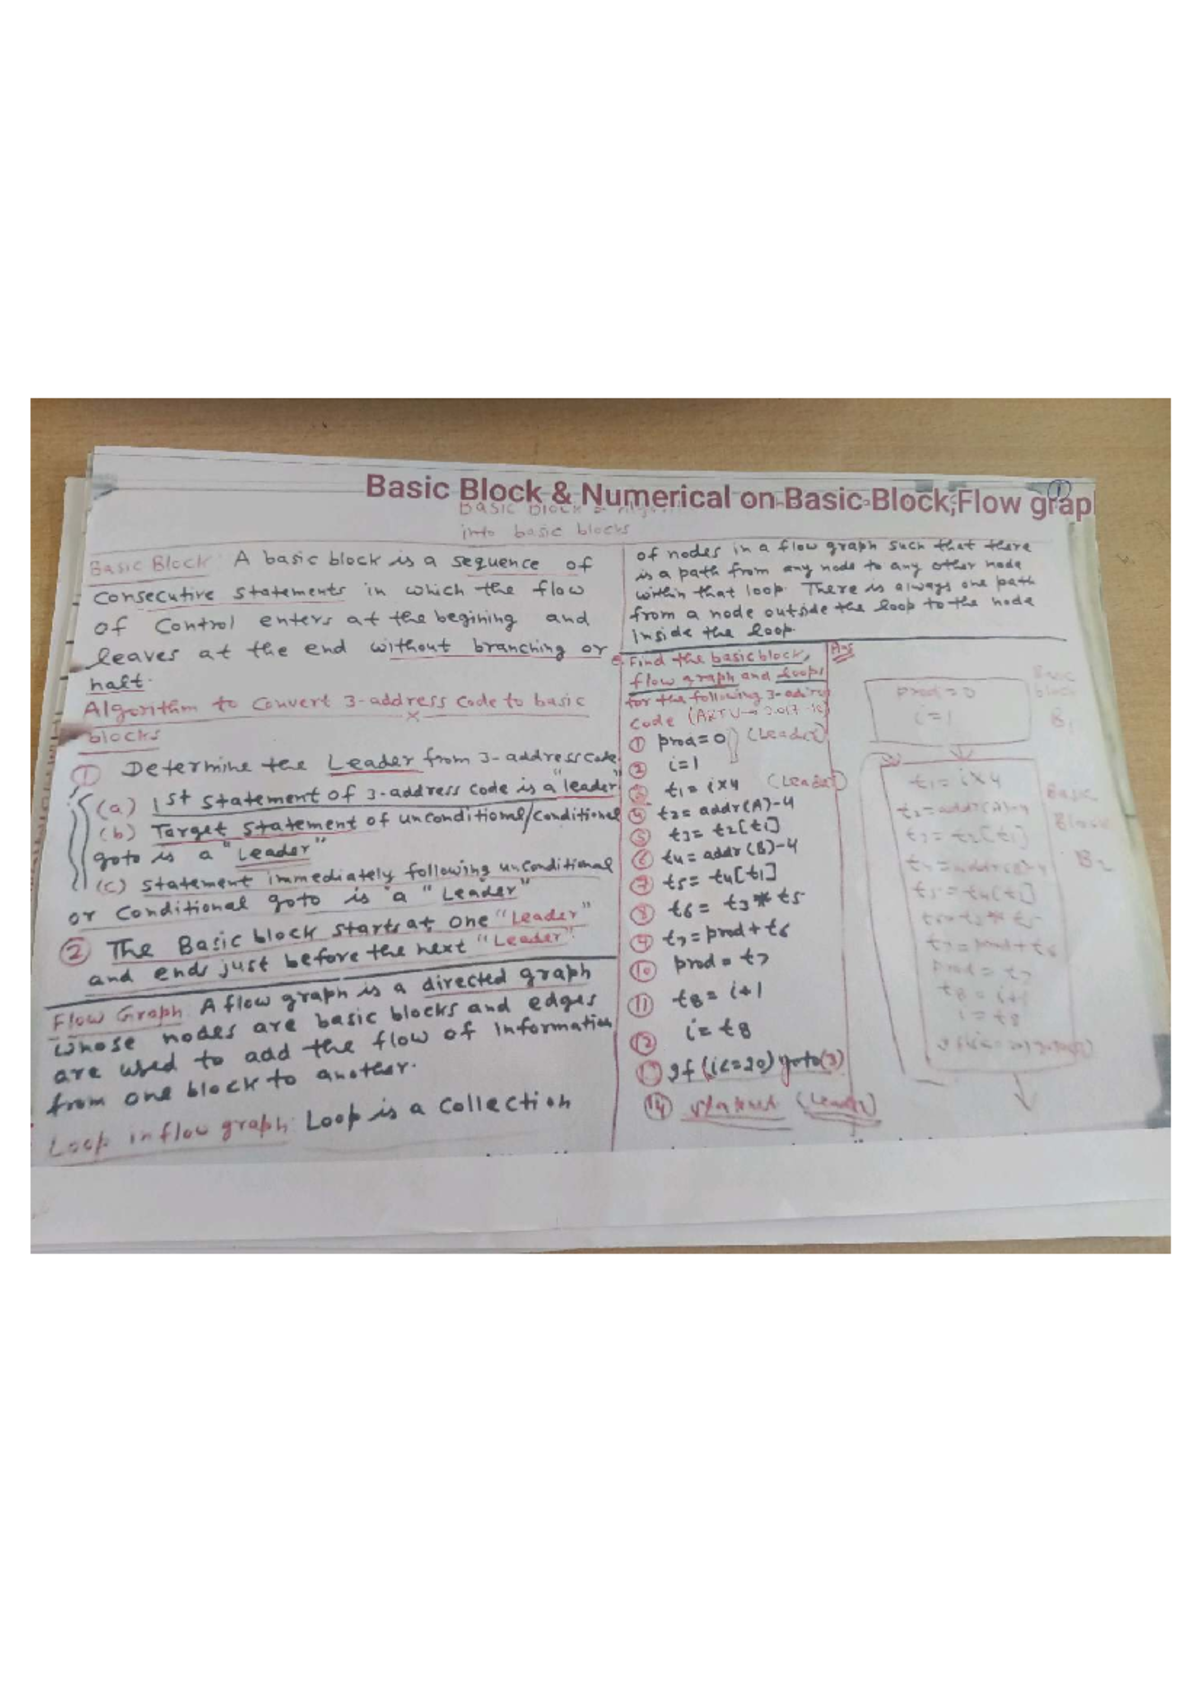 Basic Block & Numerical on Basic Block,Flow grap
1
into basic blocks
Basic Block: A basic block is a sequence of
consecutive statements in which the flow
of control enters at the begining and
leaves at the end without branching or
halt.
Algorithm to convert 3-address code to basic
blocks
① Determine the Leader from 3-address code
(a) 1st statement of 3-address code is a "leader"
(b) Target statement of unconditional/conditional
goto is a "Leader"
(c) statement immediately following unconditional
or conditional goto is a "Leader"
② The Basic block starts at one "Leader"
and ends just before the next "Leader".
Flow Graph: A flow graph is a directed graph
whose nodes are basic blocks and edges
are used to add the flow of information
from one block to another.
Loop in flow graph: Loop is a collection
of nodes in a flow graph such that there
is a path from any node to any other node
within that loop. There is always one path
from a node outside the loop to the node
inside the loop.
Find the basic block,
flow graph and loops
for the following 3-address
code
① prod=0 (Leader)
② i=1
③ t1= i×4 (Leader)
④ t2= addr(A)-4
⑤ t3= t2[t1]
⑥ t4= addr(B)-4
⑦ t5= t4[t1]
⑧ t6= t3*t5
⑨ t7=prod+t6
⑩ prod= t7
⑪ t8= i+1
⑫ i= t8
⑬ If (i<=20) goto(3)
⑭ (Leader)
Ans
prod=0
i=1
Basic
block
B1
t1= i×4
t2=addr(A)-4
t3= t2[t1]
t4=addr(B)-4
t5= t4[t1]
t6=t3*t5
t7=prod+t6
prod= t7
t8= i+1
i=t8
if(i<=20)goto(3)
Basic
Block
B2